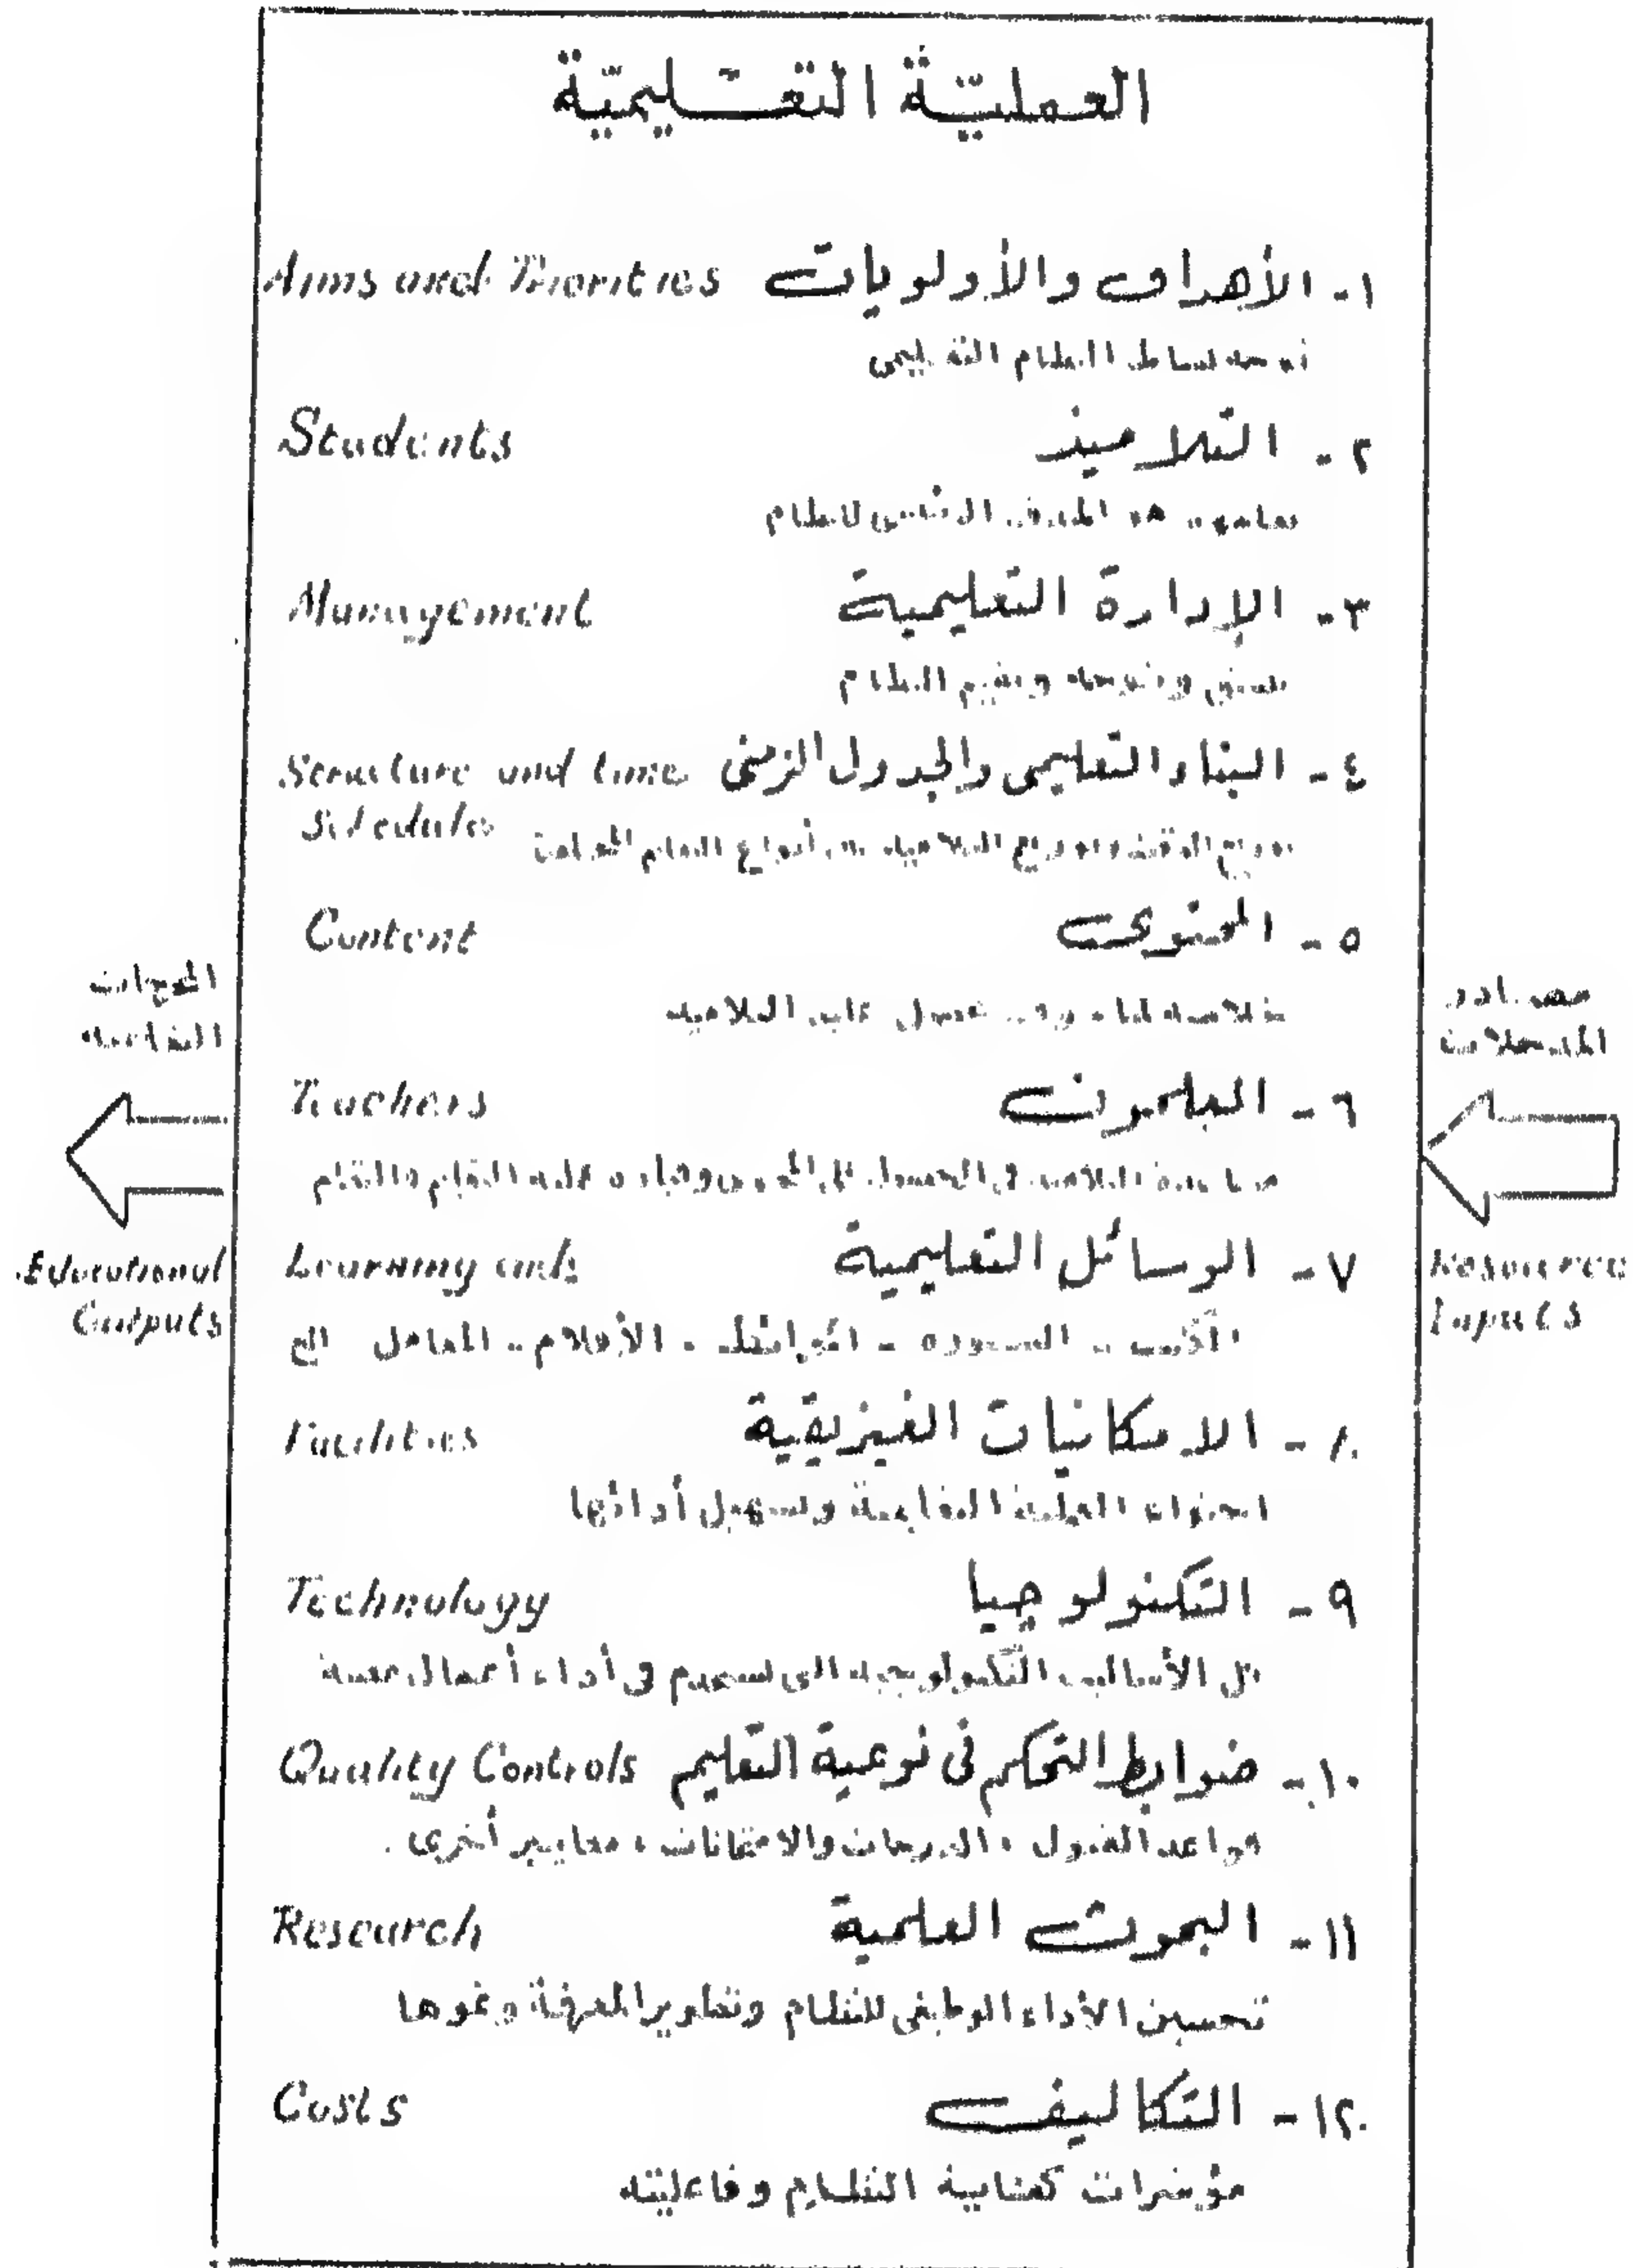 العملية التعليمية
١- الأهداف والأولويات Aims and Priorities
توجه نشاط النظام التعليمى
٢- التلاميذ Students
تعليمهم هو الهدف الرئيسى للنظام
٣- الإدارة التعليمية Management
تنسيق وتوجيه وتقييم النظام
٤- البناء التعليمى والجدول الزمنى Structure and time
Schedules
توزيع الوقت وتوزيع التلاميذ أنواع التعليم المختلفة
٥- المحتوى Content
عليه التلاميذ
٦- المعلمون Teachers
مساعدة التلاميذ فى الحصول على المحتوى وقيادة عملية التعليم والتعلم
٧- الوسائل التعليمية Learning aids
الكتب - السبورة - الخرائط - الأفلام - المعامل الخ
٨- الامكانيات الفيزيقية Facilities
احتواء العملية التعليمية وتسهيل أدائها
٩- التكنولوجيا Technology
كل الأساليب التكنولوجية التى تستخدم فى أداء أعمال معينة
١٠- ضوابط التحكم فى نوعية التعليم Quality Controls
قواعد القبول ، الدرجات والامتحانات ، معايير أخرى .
١١- البحوث العلمية Research
تحسين الأداء الوظيفى للنظام وتطوير المعرفة ونموها
١٢- التكاليف Costs
مؤشرات كفاية النظام وفاعليته
مصادر
المدخلات
Resource
Inputs
المخرجات
التعليمية
Educational
Outputs